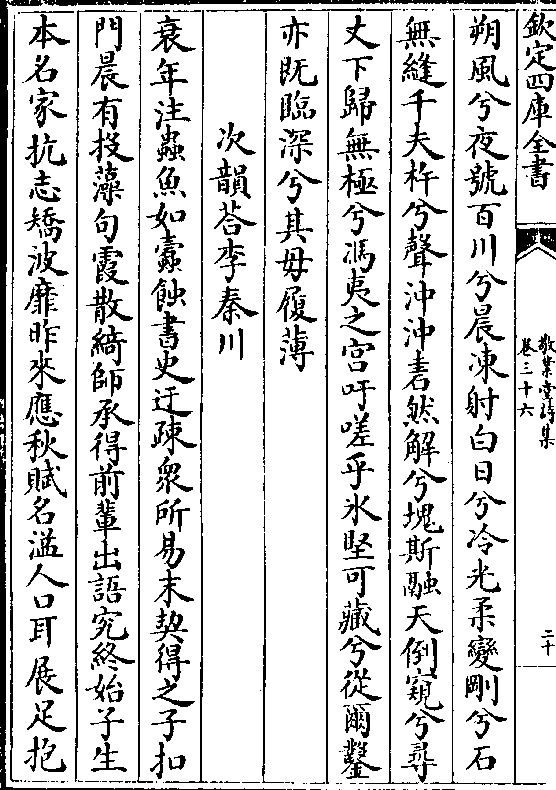 欽定四庫全書
敬業堂詩集
卷三十六
二十
朔風兮夜號百川兮晨凍射白日兮冷光柔變剛兮石
無縫千夫杵兮聲沖沖砉然解兮塊斯融天倒窺兮尋
丈下歸無極兮馮夷之宫吁嗟乎氷堅可藏兮從爾鑿
亦既臨深兮其毋履薄
次韻荅李秦川
衰年注蟲魚如蠧蝕書史迂疎衆所易末契得之子扣
門晨有投藻句霞散綺師承得前輩出語究終始子生
本名家抗志矯波靡昨來應秋賦名滥人口耳展足抱